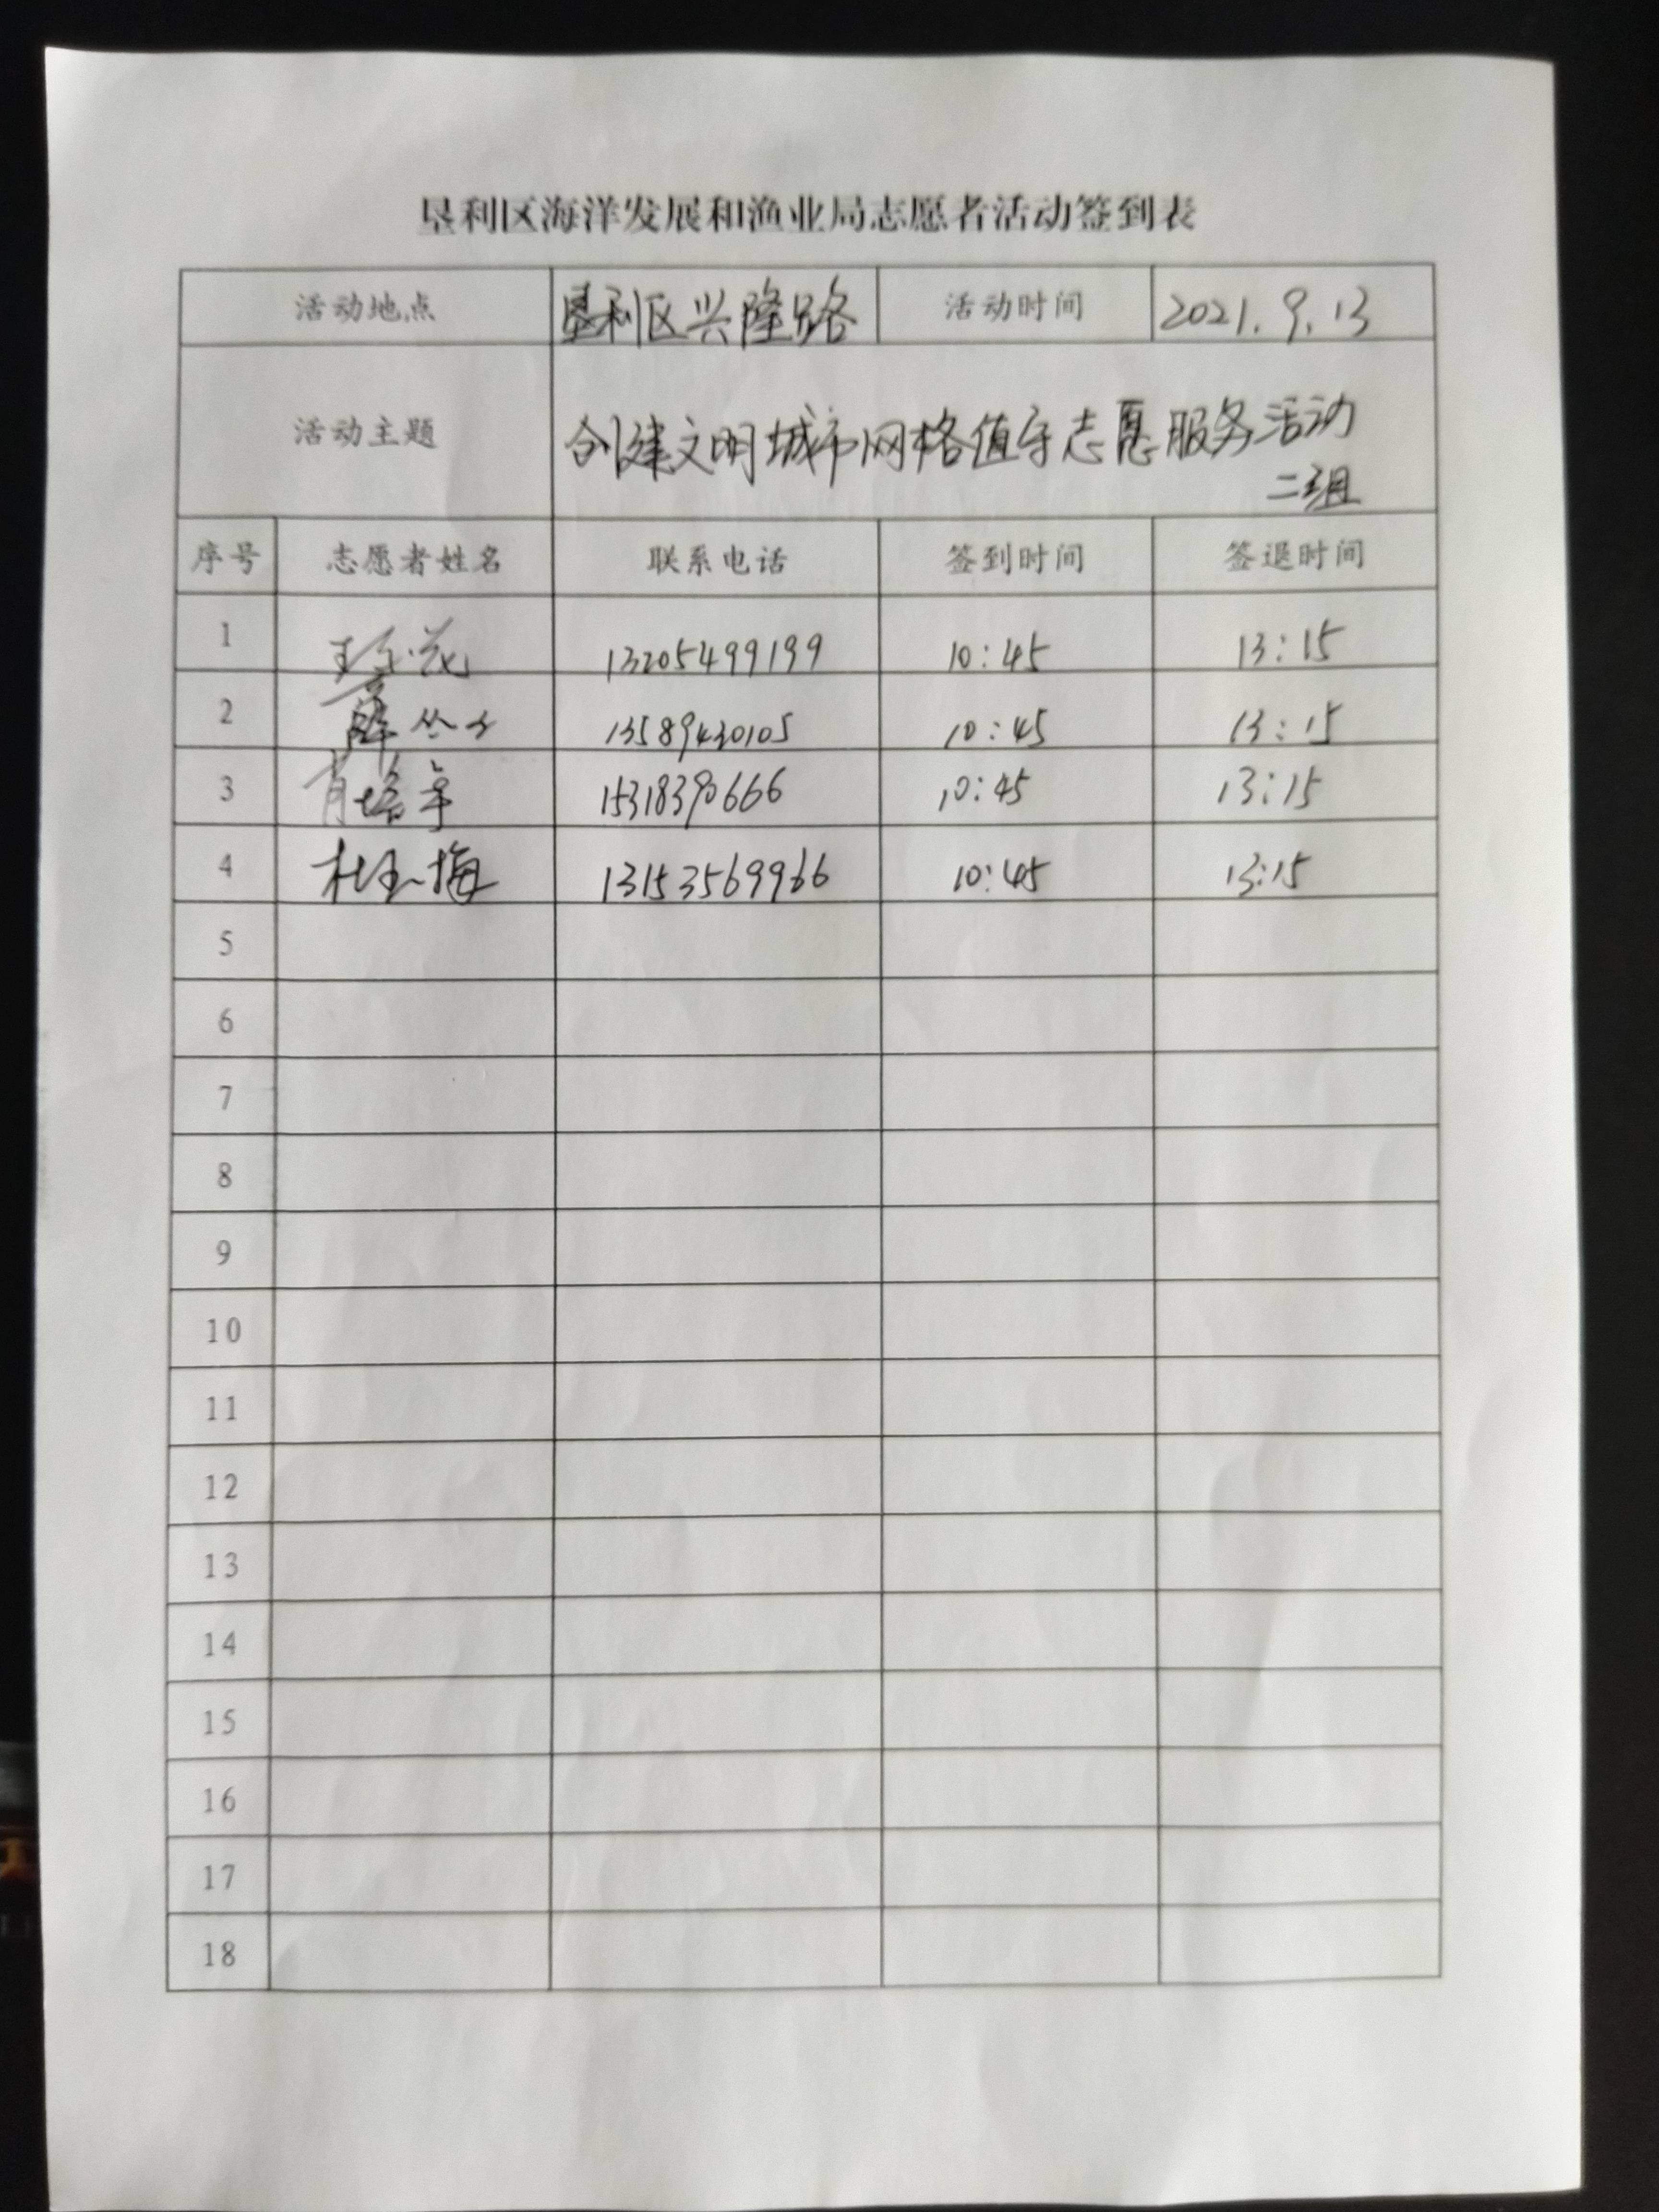 垦利区海洋发展和渔业局志愿者活动签到表
活动地点 垦利区兴隆路 活动时间 2021.9.13
活动主题 创建文明城市网格值守志愿服务活动
二组
序号 志愿者姓名 联系电话 签到时间 签退时间
1 13205499199 10:45 13:15
2 13589430105 10:45 13:15
3 肖培军 15318390666 10:45 13:15
4 杜玉梅 13153569966 10:45 13:15
5
6
7
8
9
10
11
12
13
14
15
16
17
18